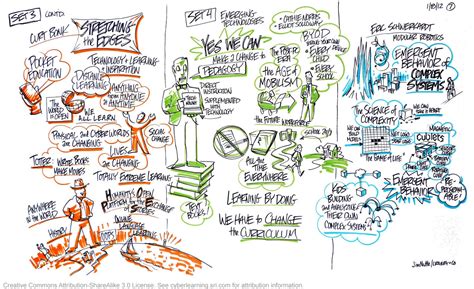 SET 3 CONT'D.
STRETCHING
the EDGES
CURT BONK
POCKET
EDUCATION
TECHNOLOGY + LEARNING
+ INSPIRATION
DISTANCE
LEARNING
ANYONE CAN
LEARN ANYTHING
FROM ANYONE
at ANYTIME
The
WORLD
is OPEN
WE
ALL LEARN
PHYSICAL and CYBER WORLDS
are CHANGING
SOCIAL
CHANGE
LIVES
are CHANGING
WHERE BOOKS
MAKE MOVIES
TOTALLY EXTREME LEARNING
ANYWHERE
in the WORLD
HUMANITY'S OPEN
PLATFORM for the
HISTORY
ONLINE
LANGUAGE
LEARNING
SET 4
EMERGING
TECHNOLOGIES
• CATHIE NORRIS
• ELLIOT SOLOWAY
YES WE CAN
MAKE a CHANGE to
PEDAGOGY
DIRECT
INSTRUCTION
SUPPLEMENTED
with
TECHNOLOGY
BYOD
• EVERY CHILD
• EVERY
SCHOOL
The POST-PC
ERA
The AGE of
MOBILISM
the FUTURE
ALL the
TIME
EVERYWHERE
TEXT
BOOKS
LEARNING BY DOING
WE HAVE to CHANGE
the CURRICULUM
1/18/12
ERIC SCHWEIKARDT
MODULAR ROBOTICS
EMERGENT
BEHAVIOR of
COMPLEX
SYSTEMS
The SCIENCE of
COMPLEXITY
The GAME of LIFE
CUBELETS
EMERGENT
BEHAVIOR
KIDS
BUILDING
and ANALYZING
THEIR OWN
COMPLEX SYSTEMS
Creative Commons Attribution-ShareAlike 3.0 License. See cyberlearning.sri.com for attribution information.